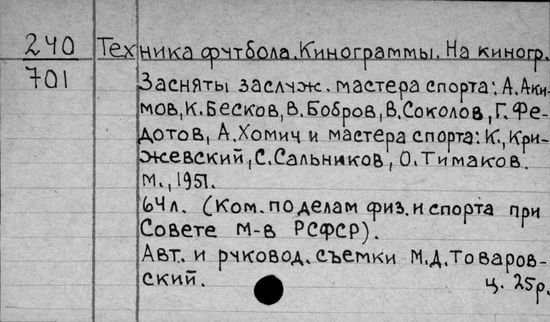 240 Техника футбола. Кинограммы. На киногр.
701 Засняты заслуж. мастера спорта: А. Аки-
мов, К. Бесков, В. Бобров, В. Соколов, Г. Фе-
дотов, А. Хомич и мастера спорта: К. Кри-
жевский, С. Сальников, О. Тимаков.
М., 1951.
64л. (Ком. по делам физ. и спорта при
Совете М-в РСФСР).
Авт. и руковод. съемки М.Д. Товаров-
ский. ц. 25р.